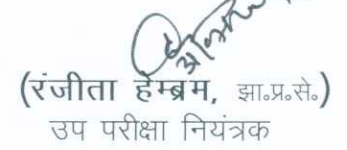 (रंजीता हेम्ब्रम, झा॰प्र॰से॰)
उप परीक्षा नियंत्रक